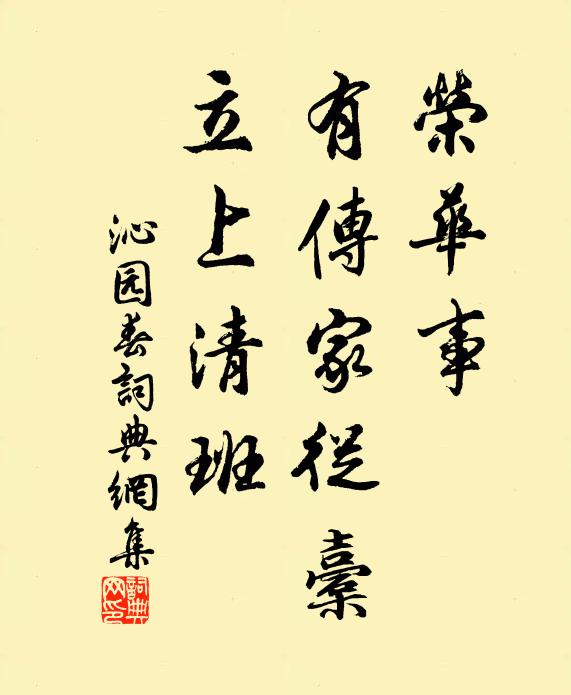 榮華事
有傳家從橐
立上清班
沁园春詞典網集
詞典網印